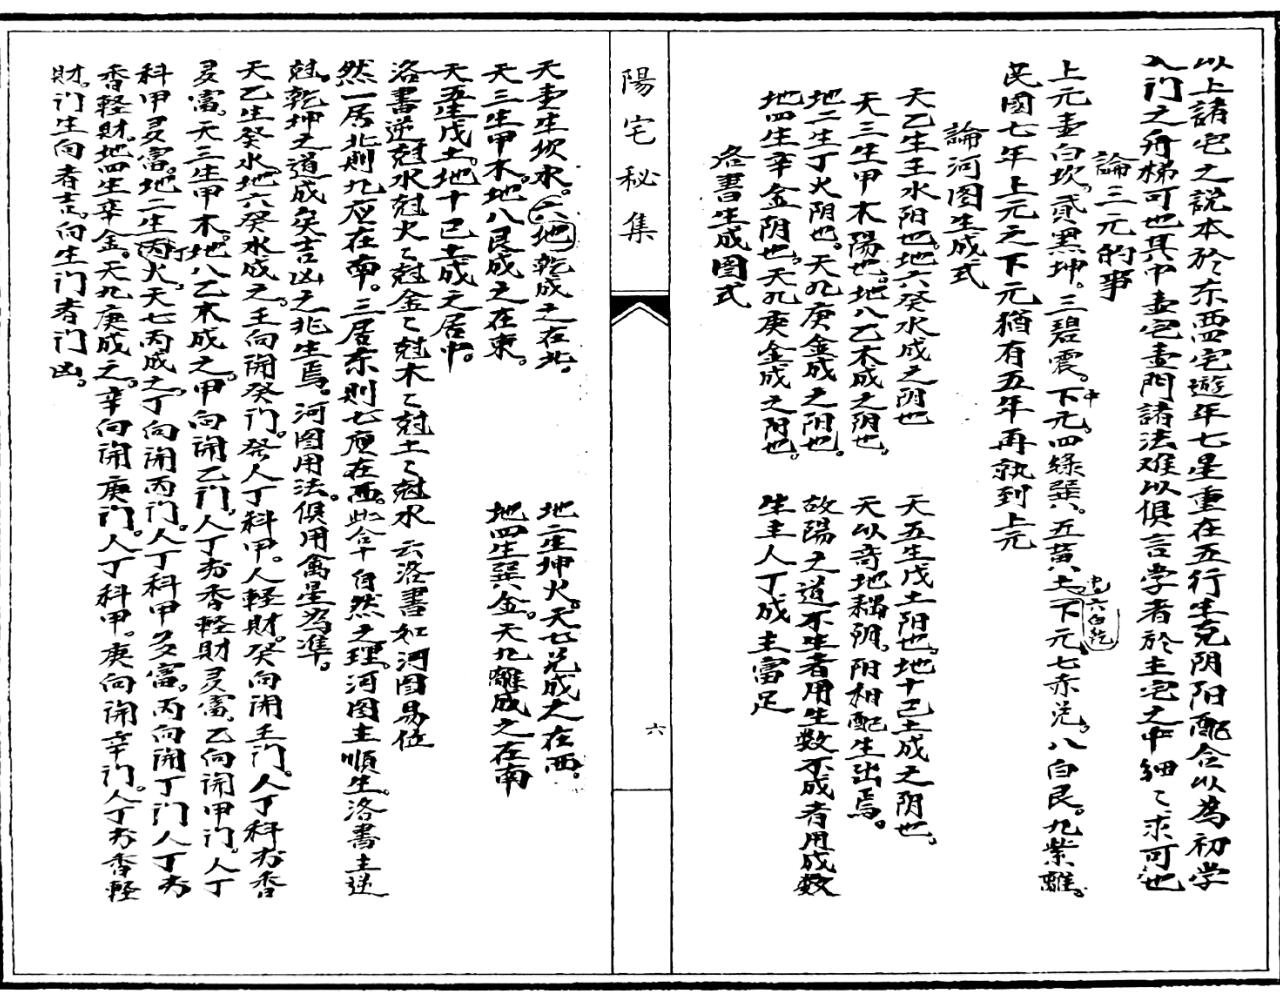 以上諸宅之説本於东西宅遊年七星重在五行生克阴阳配合以為初学
入门之舟梯可也其中壹宅壹門諸法难以俱言学者於主宅之中細〻求可也
論三元的事
上元壹白坎。貳黑坤。三碧震。下元四綠巽。五黃土下元七赤兑。八白艮。九紫離。
中
中六白乾
民國七年上元之下元猶有五年再执到上元
論河图生成式
天乙生壬水阳也地六癸水成之阴也
天三生甲木陽也。地八乙木成之阴也。
地二生丁火阴也。天九庚金成之阳也。
地四生辛金阴也。天九庚金成之阳也。
天五生戊土阳也。地十己土成之阴也。
天以奇地耦阴。阳相配生出焉。
故陽之道不生者用生数不成者用成数
生主人丁成主富足
洛書生成图式
陽宅秘集
六
天壹生坎水。六地乾成之在北。
天三生甲木。地八艮成之在東。
天五生戊土。地十己土成之居中。
地二生坤火。天七兑成之在西。
地四生巽金。天九離成之在南
洛書逆尅水尅火〻尅金〻尅木〻尅土〻尅水 云洛書和河图易位
然一居北則九应在南。三居东則七应在西。此合十自然之理。河图主順生。洛書主逆
尅。乾坤之道成矣吉凶之兆生焉。河图用法。俱用禽星為準。
天乙生癸水。地六癸水成之。壬向開癸门。癸人丁科甲。人輕財。癸向開壬门。人丁科为香
灵富。天三生甲木。地八乙木成之。甲向開乙门。人丁为香輕財灵富。乙向開甲门。人丁
科甲灵富。地二生丙火。天七丙成之。丁向開丙门。人丁科甲灵富。丙向開丁门人丁为
丁
香輕財。地四生辛金。天九庚成之。辛向開庚门。人丁科甲。庚向開辛门。人丁为香輕
財。门生向者吉。向生门者门凶。